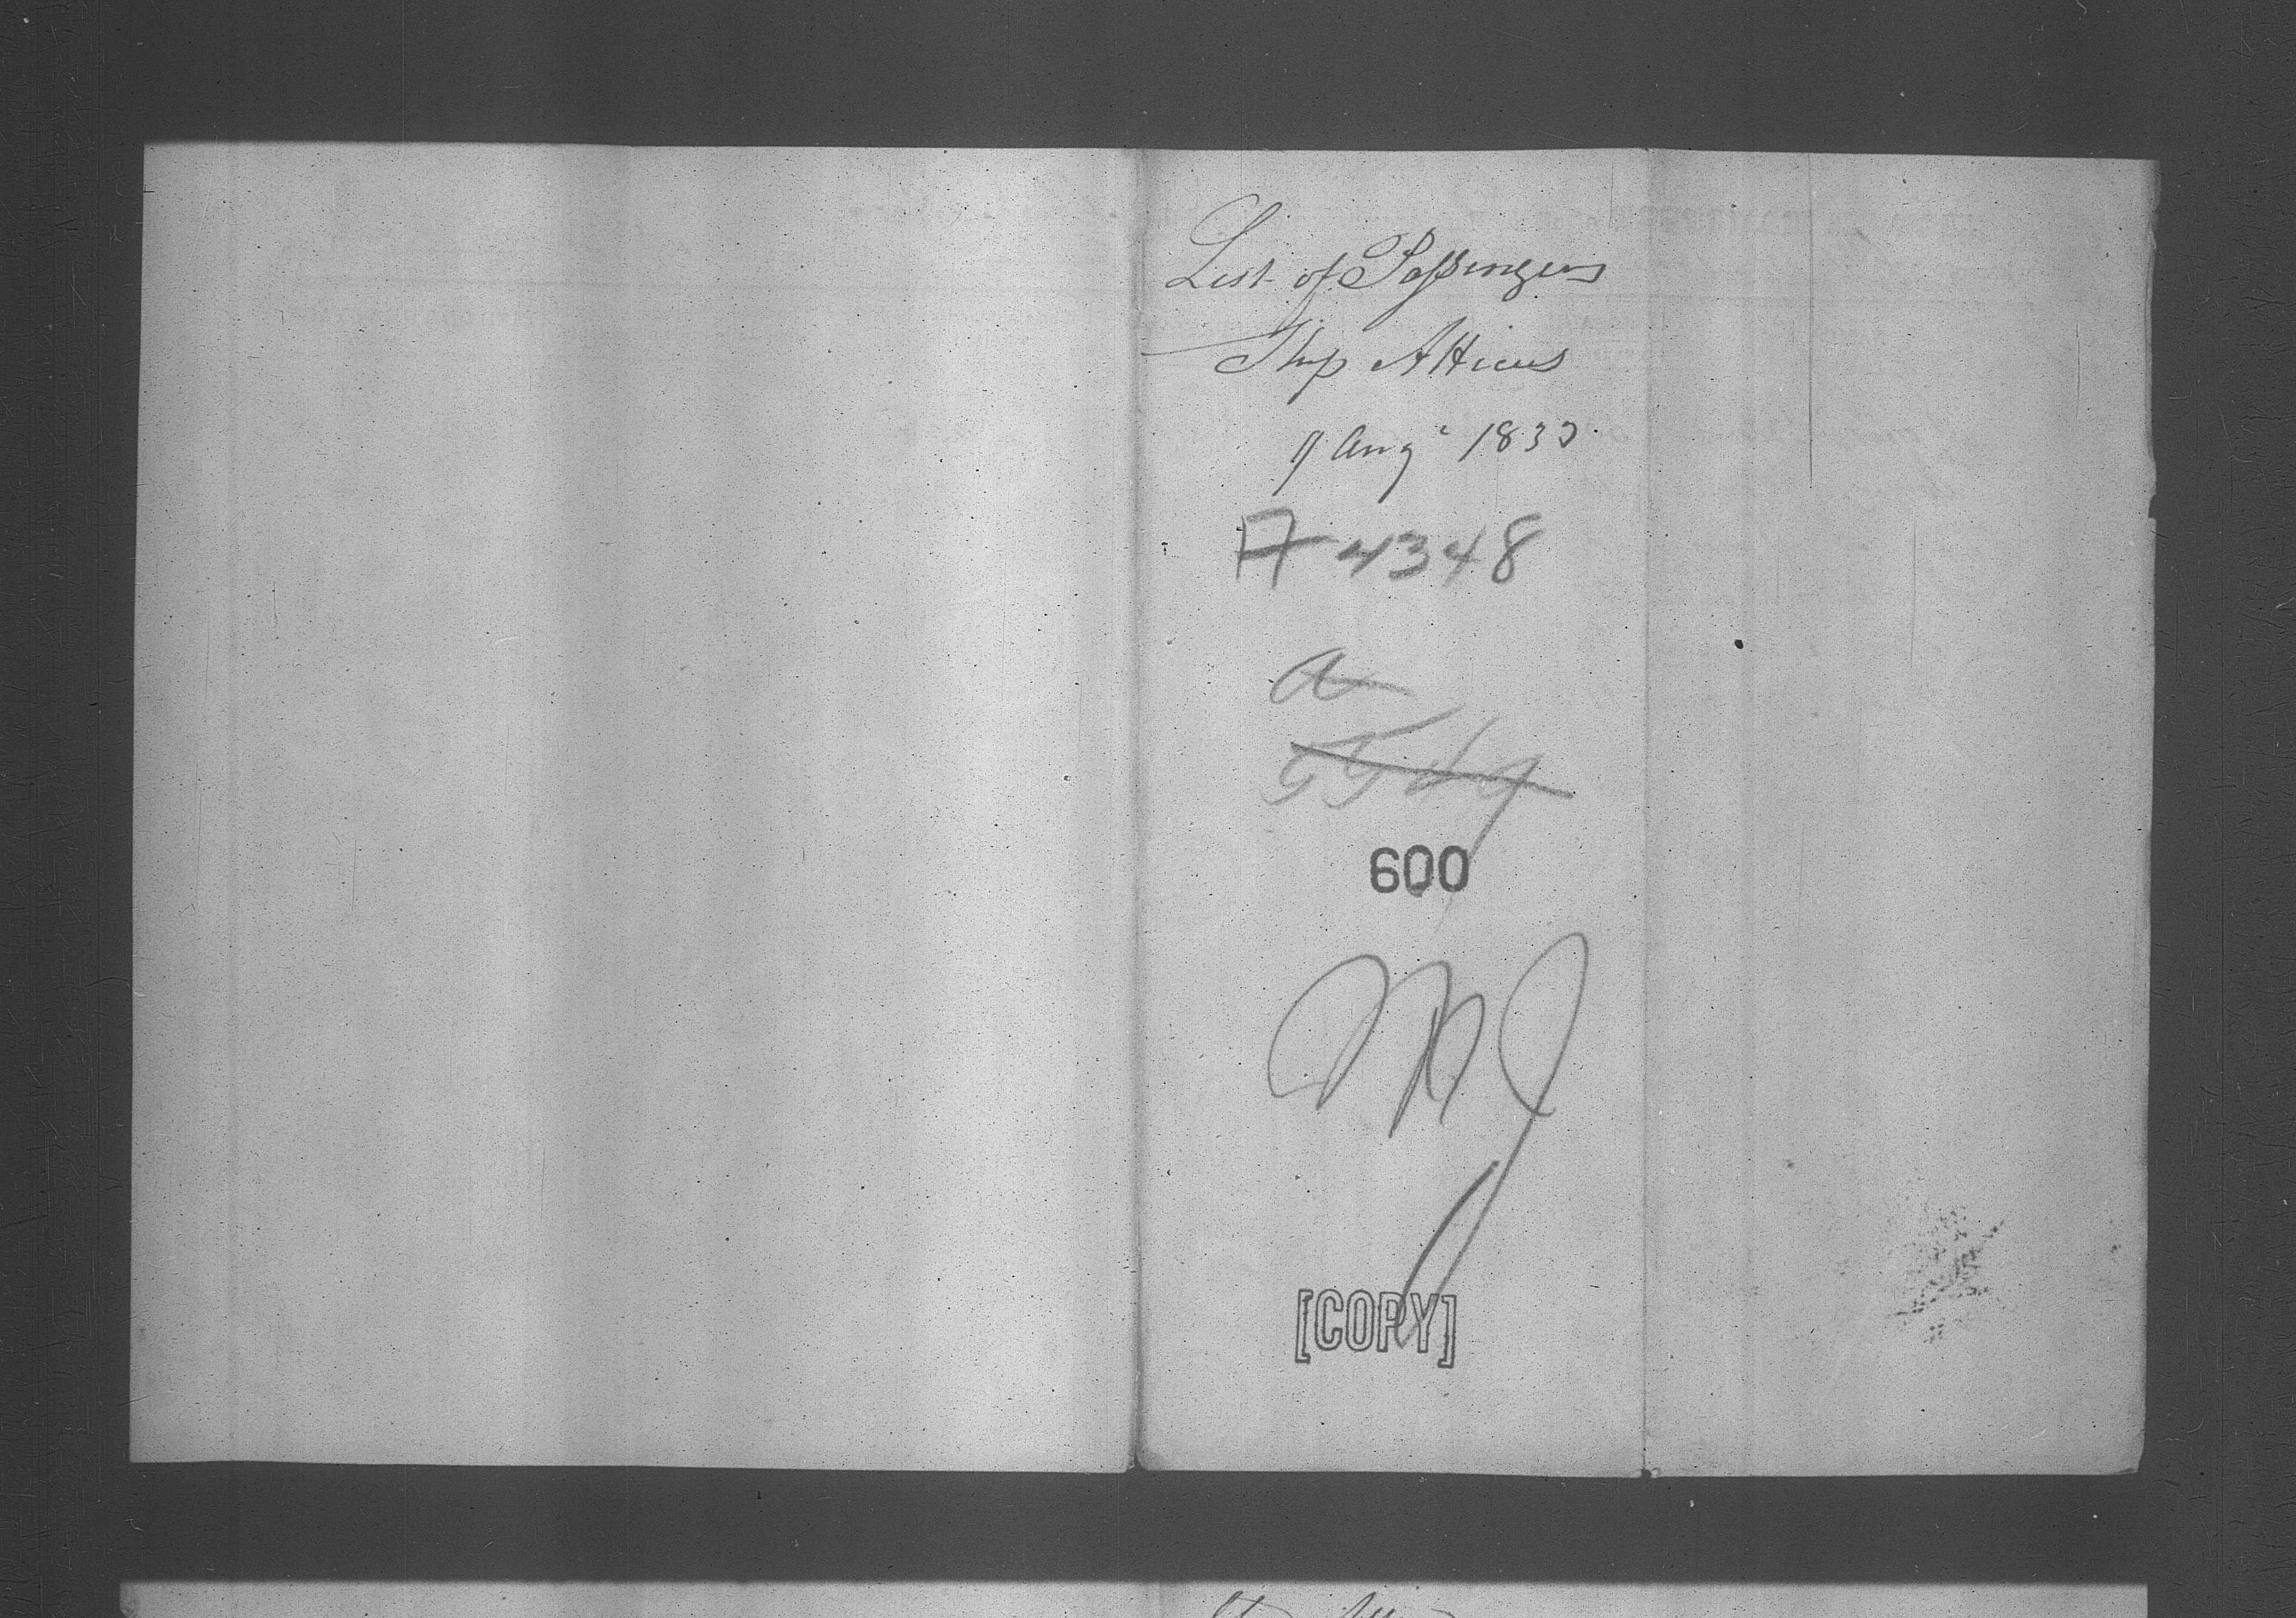 List of Passingers
Ship Atticus
9 Augt 1833
A 4348
a
5549
600
[COPY]